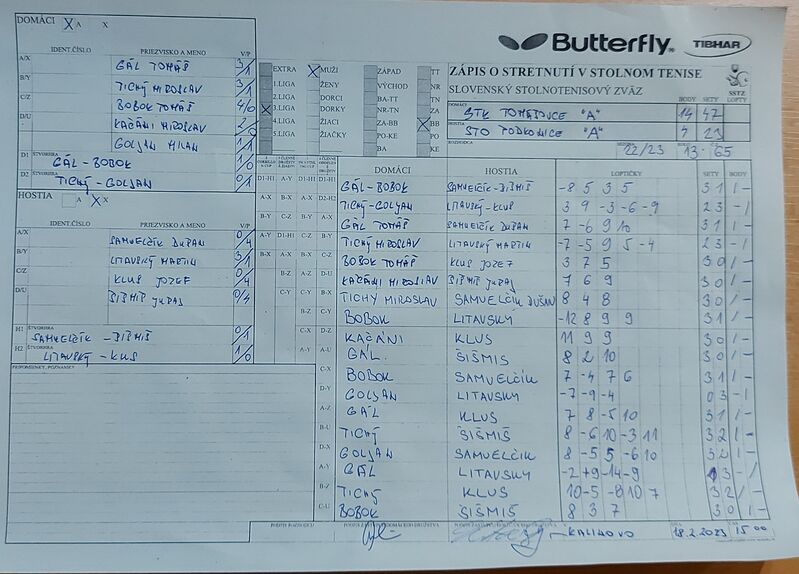 DOMÁCI X A X
Butterfly TIBHAR
IDENT.ČÍSLO PRIEZVISKO A MENO V/P
A/X GÁL TOMÁŠ 3/1
B/Y TICHÝ MIROSLAV 3/1
C/Z BOBOK TOMÁŠ 4/0
D/U KAČÁNI MIROSLAV 2/0
GOLJAN MILAN
D1 ŠTVORHRA GÁL-BOBOK 1/0
D2 ŠTVORHRA TICHÝ-GOLJAN 0/1
EXTRA X MUŽI ZÁPAD TT
1.LIGA ŽENY VÝCHOD NR
2.LIGA DORCI BA-TT TN
X 3.LIGA DORKY NR-TN ZA
4.LIGA ŽIACI ZA-BB X BB
5.LIGA ŽIAČKY PO-KE PO
BA KE
ZÁPIS O STRETNUTÍ V STOLNOM TENISE
SLOVENSKÝ STOLNOTENISOVÝ ZVÄZ
SSTZ
BODY SETY LOPTY
DOMÁCI STK TOMÁŠOVCE "A" 14 47
HOSTIA STO PODKONICE "A" 4 23
ROZHODCA 22/23 13. 65
HOSTIA A X X
IDENT.ČÍSLO PRIEZVISKO A MENO V/P
A/X SAMUELČÍK DUŠAN 0/4
B/Y LITAVSKÝ MARTIN 3/1
C/Z KLUS JOZEF 0/4
D/U ŠIŠMIŠ JURAJ 0/4
H1 ŠTVORHRA SAMUELČÍK - ŠIŠMIŠ 0/1
H2 ŠTVORHRA LITAVSKÝ - KLUS 1/0
PRIPOMIENKY, POZNÁMKY
DOMÁCI HOSTIA LOPTIČKY SETY BODY
GÁL-BOBOK SAMUELČÍK-ŠIŠMIŠ -8 5 3 5 3 1 1 -
TICHÝ-GOLJAN LITAVSKÝ-KLUS 3 9 -3 -6 -9 2 3 - 1
GÁL TOMÁŠ SAMUELČÍK DUŠAN 7 -6 9 10 3 1 1 -
TICHÝ MIROSLAV LITAVSKÝ MARTIN -7 -5 9 5 -4 2 3 - 1
BOBOK TOMÁŠ KLUS JOZEF 3 7 5 3 0 1 -
KAČÁNI MIROSLAV ŠIŠMIŠ JURAJ 7 6 9 3 0 1 -
TICHÝ MIROSLAV SAMUELČÍK DUŠAN 8 4 8 3 0 1 -
BOBOK LITAVSKÝ -12 8 9 9 3 1 1 -
KAČÁNI KLUS 11 9 9 3 0 1 -
GÁL ŠIŠMIŠ 8 2 10 3 0 1 -
BOBOK SAMUELČÍK 7 -4 7 6 3 1 1 -
GOLJAN LITAVSKÝ -7 -9 -4 0 3 - 1
GÁL KLUS 7 8 -5 10 3 1 1 -
TICHÝ ŠIŠMIŠ 8 -6 10 -3 11 3 2 1 -
GOLJAN SAMUELČÍK 8 -5 5 -6 10 3 2 1 -
GÁL LITAVSKÝ -2 +9 -14 -9 1 3 - 1
TICHÝ KLUS 10 -5 -8 10 7 3 2 1 -
BOBOK ŠIŠMIŠ 8 3 7 3 0 1 -
- KALINOVO 18.2.2023 15 00